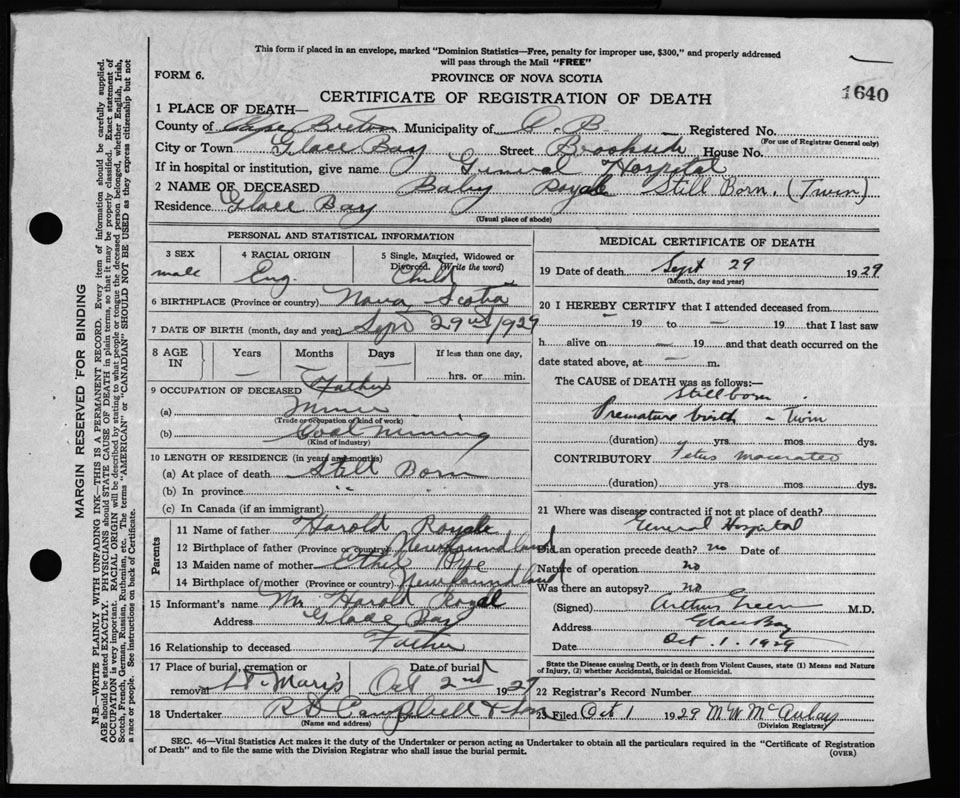 This form if placed in an envelope, marked "Dominion Statistics—Free, penalty for improper use, $300," and properly addressed
will pass through the Mail "FREE"
FORM 6.
PROVINCE OF NOVA SCOTIA
CERTIFICATE OF REGISTRATION OF DEATH
1640
1 PLACE OF DEATH—
County of Cape Breton Municipality of C. B. Registered No.
(For use of Registrar General only)
City or Town Glace Bay Street Brookside House No.
If in hospital or institution, give name General Hospital
2 NAME OF DECEASED Baby Royale Still Born. (Twin)
Residence Glace Bay
(Usual place of abode)
PERSONAL AND STATISTICAL INFORMATION
3 SEX 4 RACIAL ORIGIN 5 Single, Married, Widowed or Divorced. (Write the word)
male Eng. Child
6 BIRTHPLACE (Province or country) Nova Scotia
7 DATE OF BIRTH (month, day and year) Sept 29 1929
8 AGE IN Years Months Days If less than one day,
— — — hrs. or min.
9 OCCUPATION OF DECEASED Father
(a) Miner
(Trade or occupation of kind of work)
(b) Coal mining
(Kind of industry)
10 LENGTH OF RESIDENCE (in years and months)
(a) At place of death Still Born
(b) In province " "
(c) In Canada (if an immigrant)
Parents
11 Name of father Harold Royale
12 Birthplace of father (Province or country) Newfoundland
13 Maiden name of mother Ethel Pye
14 Birthplace of mother (Province or country) Newfoundland
15 Informant's name Mr Harold Royal
Address Glace Bay
16 Relationship to deceased Father
17 Place of burial, cremation or removal St Mary's Date of burial Oct 2nd 1929
18 Undertaker R D Campbell & Son
(Name and address)
MEDICAL CERTIFICATE OF DEATH
19 Date of death Sept 29 1929
(Month, day and year)
20 I HEREBY CERTIFY that I attended deceased from
— 19 to — 19 that I last saw
h alive on — 19 and that death occurred on the
date stated above, at — m.
The CAUSE OF DEATH was as follows:—
Stillborn
Premature birth - Twin
(duration) yrs. mos. dys.
CONTRIBUTORY Fetus macerated
(duration) yrs. mos. dys.
21 Where was disease contracted if not at place of death?
General Hospital
Did an operation precede death? no Date of
Nature of operation no
Was there an autopsy? no
(Signed) Arthur Green M.D.
Address Glace Bay
Date Oct. 1. 1929
State the Disease causing Death, or in death from Violent Causes, state (1) Means and Nature
of Injury, (2) whether Accidental, Suicidal or Homicidal.
22 Registrar's Record Number
23 Filed Oct 1 1929 M W McAulay
(Division Registrar)
SEC. 46—Vital Statistics Act makes it the duty of the Undertaker or person acting as Undertaker to obtain all the particulars required in the "Certificate of Registration
of Death" and to file the same with the Division Registrar who shall issue the burial permit.
(OVER)
MARGIN RESERVED FOR BINDING
N.B.—WRITE PLAINLY WITH UNFADING INK—THIS IS A PERMANENT RECORD. Every item of information should be carefully supplied.
AGE should be stated EXACTLY. PHYSICIANS should STATE CAUSE OF DEATH in plain terms, so that it may be properly classified. Exact statement of
OCCUPATION is very important. RACIAL ORIGIN will be described by stating to what people or tongue the deceased person belonged, whether English, Irish,
Scotch, French, German, Russian, Ruthenian, etc. The terms "AMERICAN" or "CANADIAN" SHOULD NOT BE USED as they express citizenship but not
a race or people. See instructions on back of Certificate.